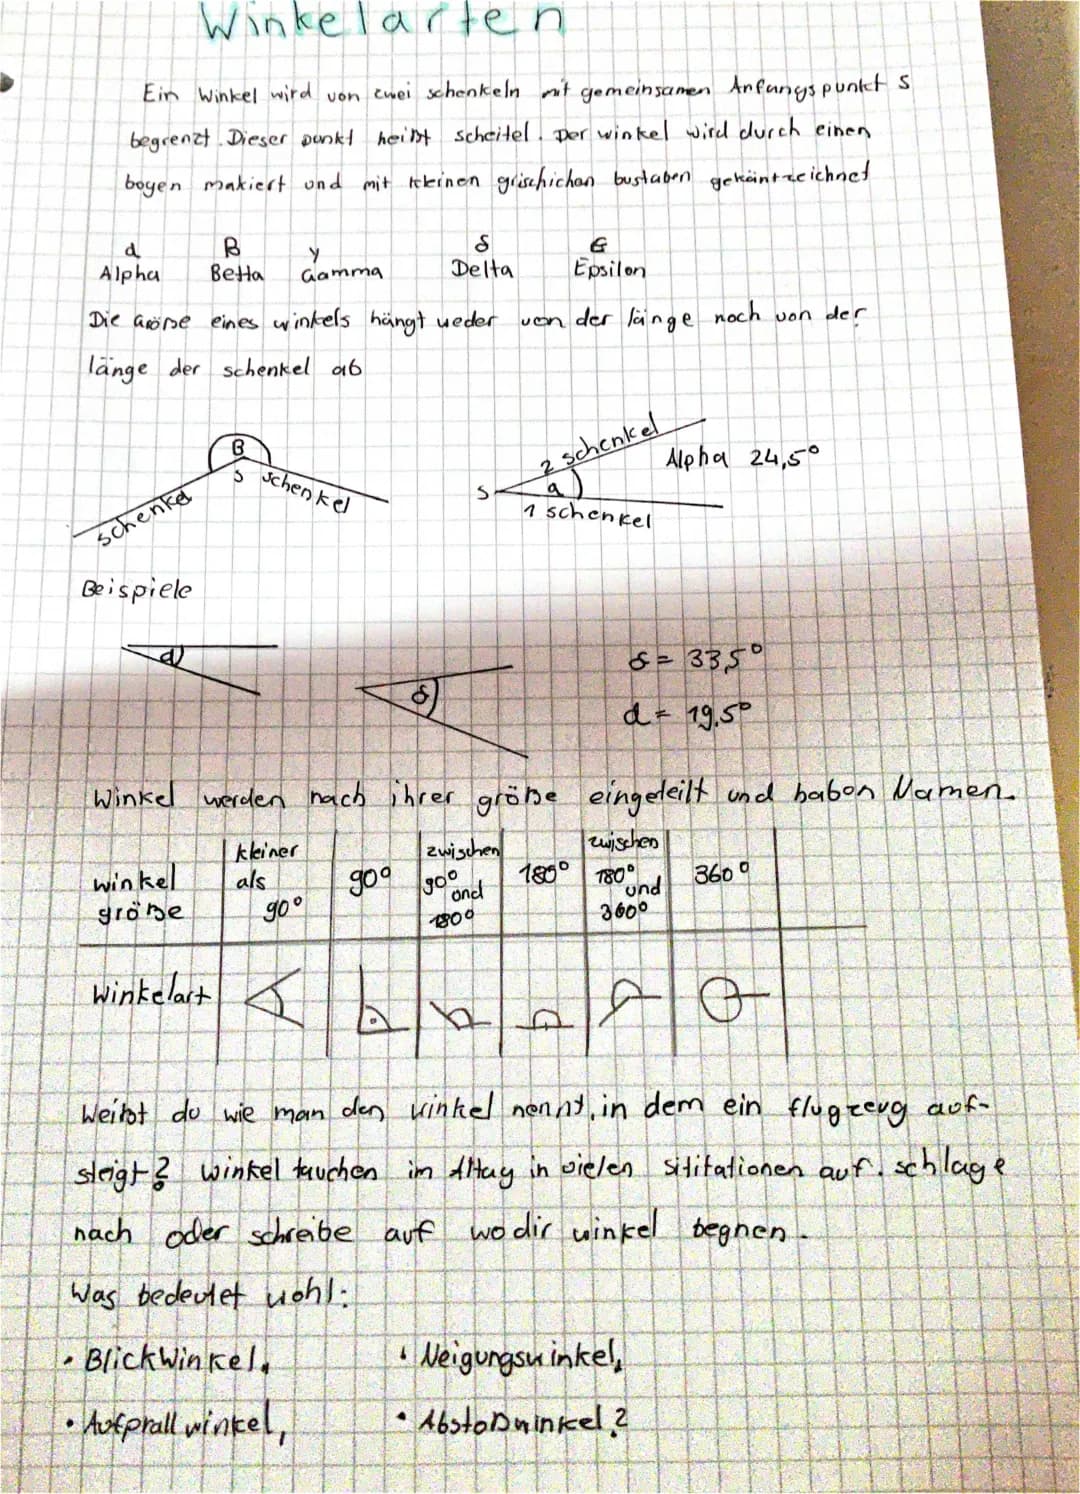 Winkelarten
Ein Winkel wird von zwei schenkeln mit gemeinsamen Anfangspunkt S
begrenzt. Dieser punkt heißt scheitel. Der winkel wird durch einen
bogen makiert und mit kleinen grischichan bustaben gekäntzeichnet
α β γ δ ε
Alpha Betta Gamma Delta Epsilon
Die Größe eines winkels hängt weder von der länge noch von der
länge der schenkel ab
β
S
schenkel
schenkel
2 schenkel
S
a
1 schenkel
Alpha 24,5°
Beispiele
α
δ
δ = 33,5°
α = 19,5°
Winkel werden nach ihrer größe eingeteilt und haben Namen.
winkel größe | kleiner als 90° | 90° | zwischen 90° und 180° | 180° | zwischen 180° und 360° | 360°
Winkelart
Weißt du wie man den winkel nennt, in dem ein flugzeug auf-
steigt? winkel tauchen im Alltag in vielen sititationen auf. schlage
nach oder schreibe auf wo dir winkel begnen.
Was bedeutet wohl:
• Blickwinkel, • Neigungswinkel,
• Aufprallwinkel, • Abstoßwinkel?